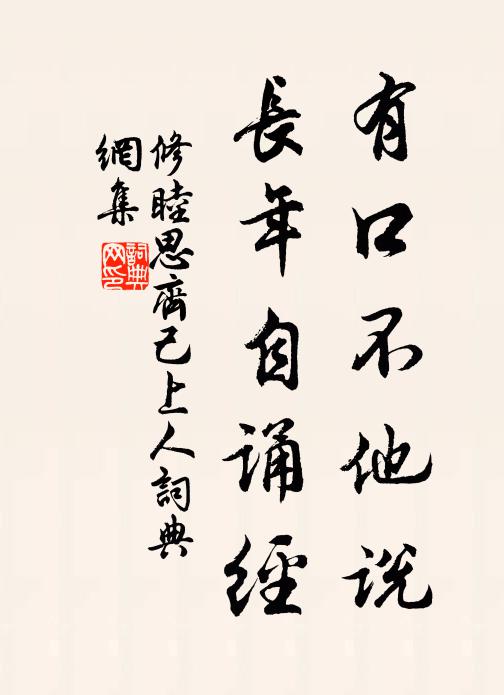 有口不他説
長年自誦經
修睦思齊己上人詞典
網集
詞典網印